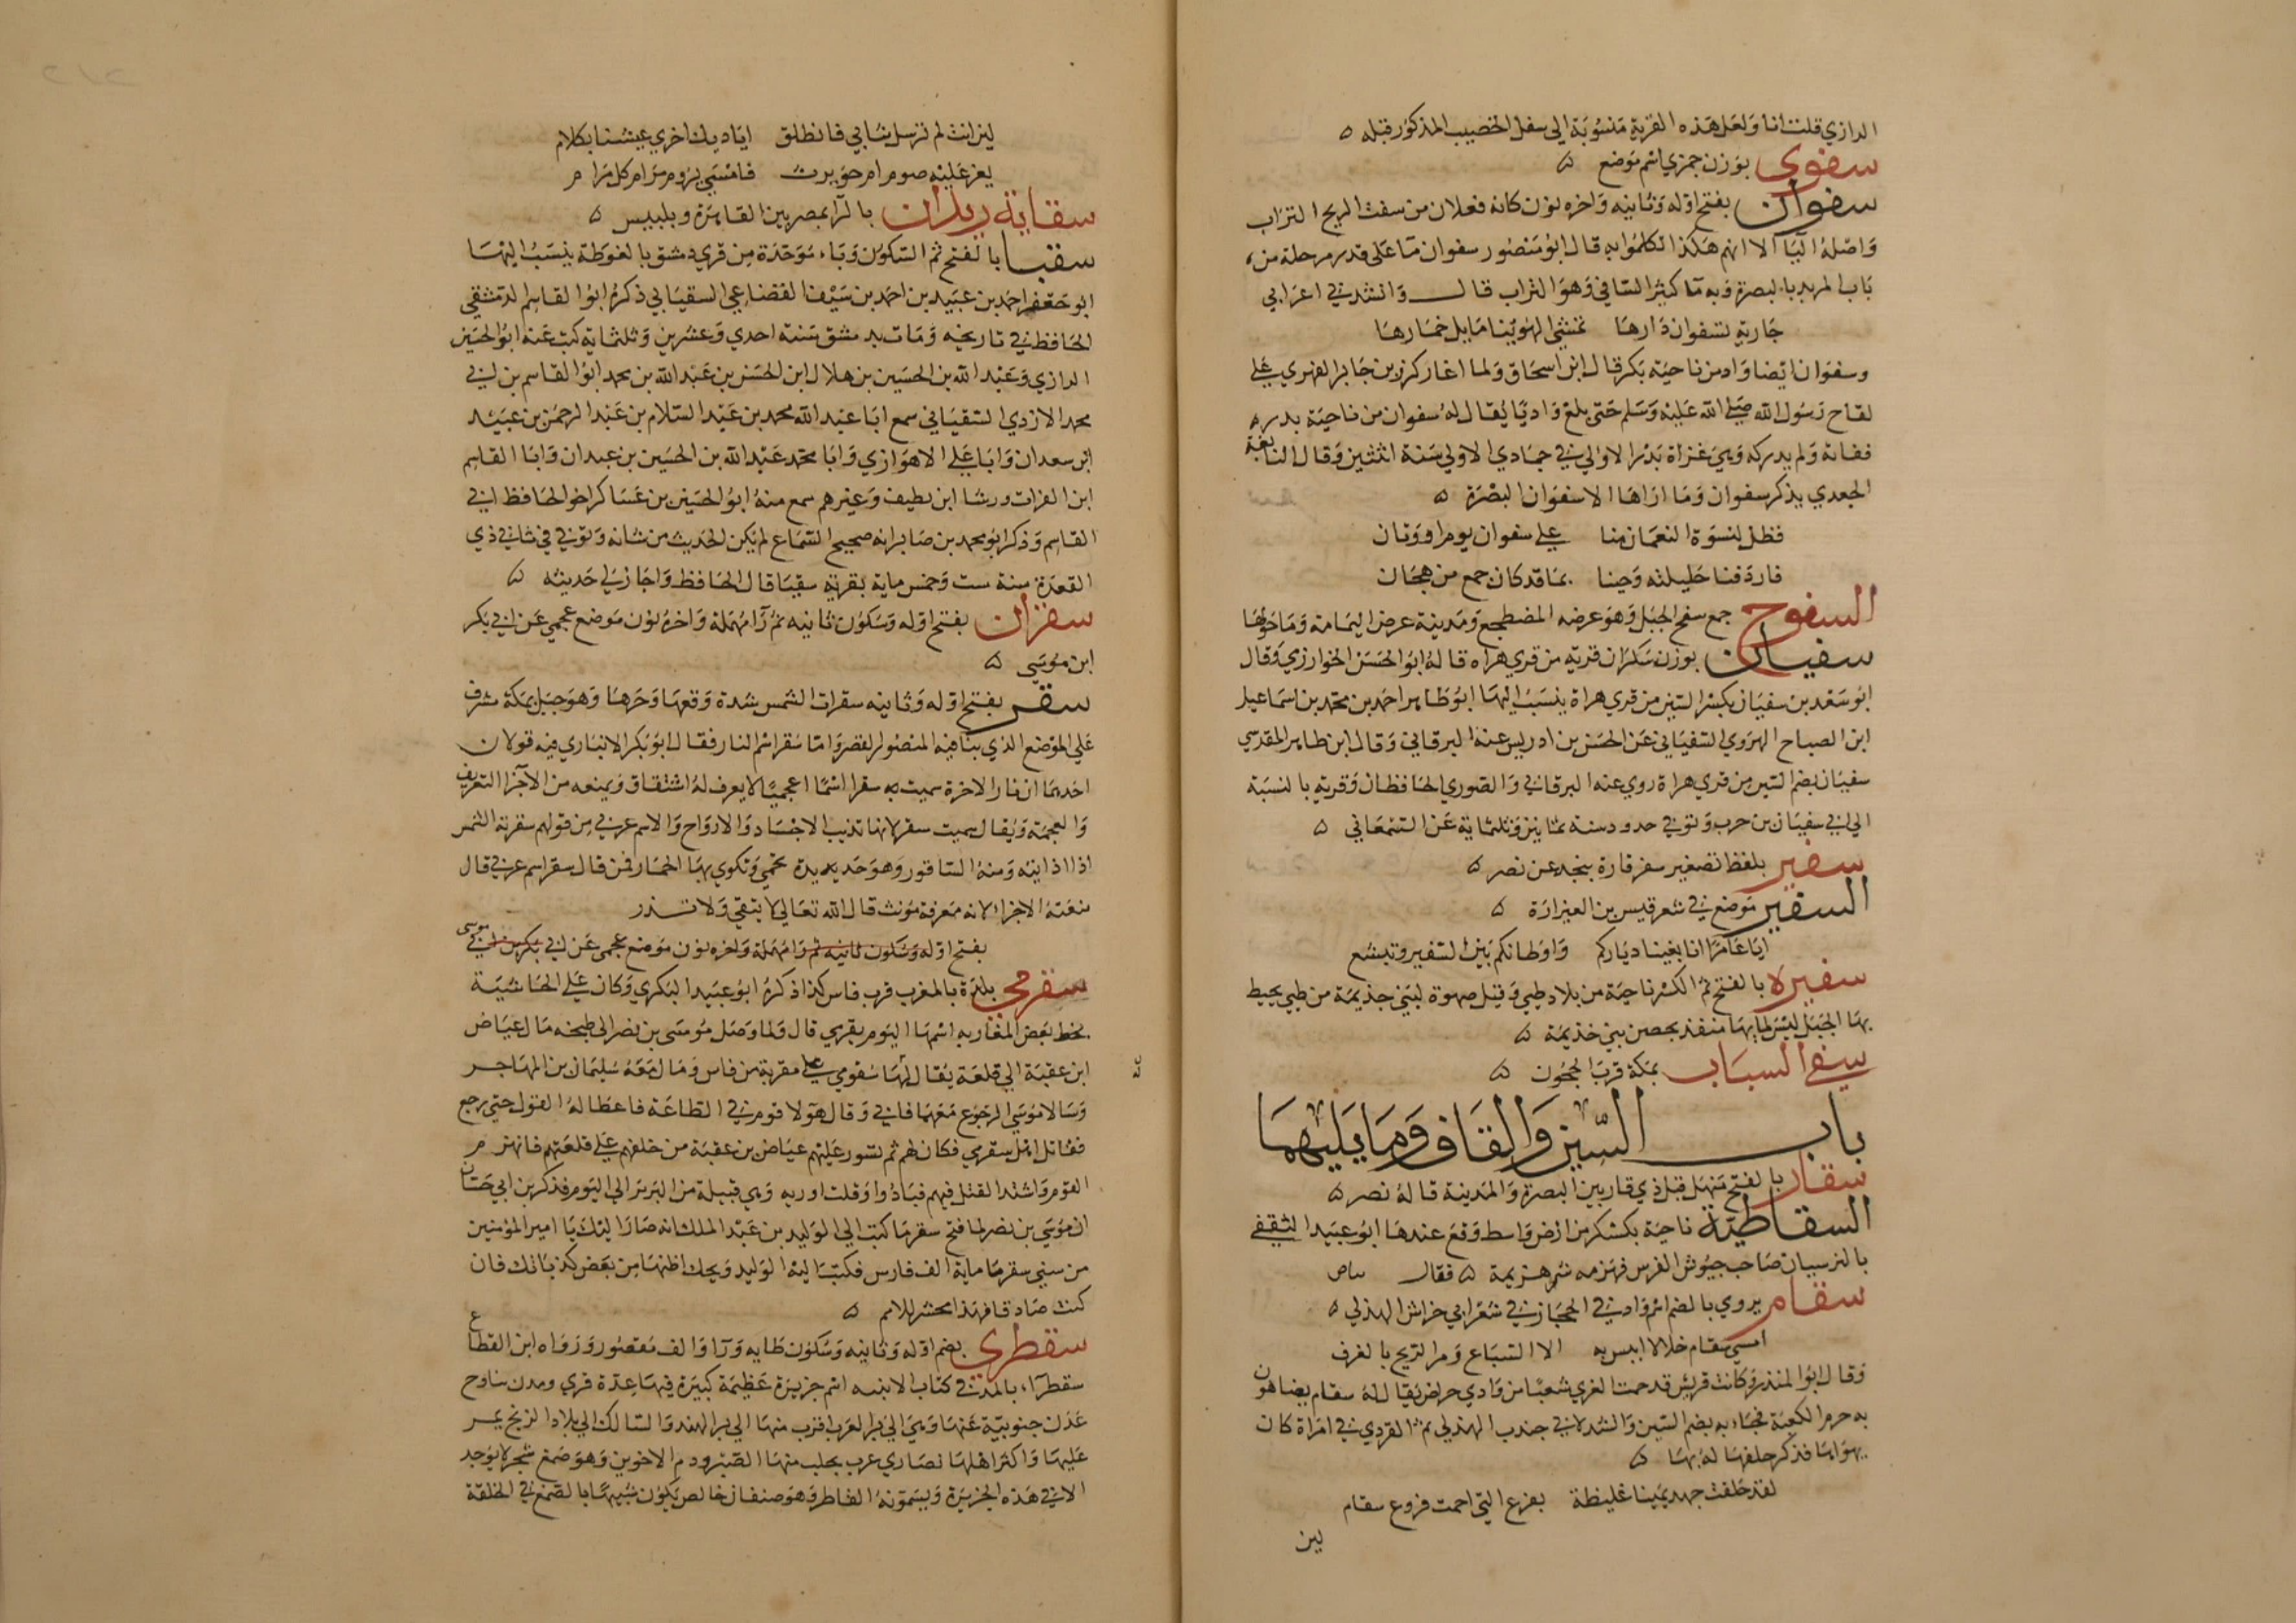 الرازي قلت انا ولعل هذه القرية منسوبة الى سفل الخصيب المذكور قبله ه
سفوى بوزن جمزي اسم موضع ه
سفوان بفتح اوله وثانيه واخره نون كانه فعلان من سفت الريح التراب
واصله اليا الا انهم هكذا تكلموا به قال ابو منصور سفوان ما على قدر مرحلة من
باب المربد بالبصرة وبه ما كثير السافي وهو التراب قال وانشدني اعرابي
جارية بسفوان دارها تمشي الهوينا مايل خمارها
وسفوان ايضا واد من ناحية بكر قال ابن اسحاق ولما اغار كرز بن جابر الفهري على
لقاح رسول الله صلى الله عليه وسلم حتى بلغ واديا يقال له سفوان من ناحية بدر ه
ففاته ولم يدركه وهي غزاة بدر الاولي في جمادي الاولي سنة اثنتين وقال النابغة
الجعدي يذكر سفوان وما اراها الا سفوان البصرة ه
فظل لنسوة النعمان منا على سفوان يوم اروونان
فاردفنا حليلته وجينا بما قد كان جمع من هجان
السفوح جمع سفح الجبل وهو عرضه المضطجع ومدينة عرض اليمامة وما حولها
سفيان بوزن سكران قرية من قري هراه قاله ابو الحسن الخوارزمي وقال
ابو سعد بن سفيان بكسر السين من قري هراة ينسب اليها ابو طاهر احمد بن محمد بن اسماعيل
ابن الصباح الهروي السفياني عن الحسن بن ادريس عنه البرقاني وقال ابن طاهر المقدسي
سفيان بضم السين من قري هراة روي عنه البرقاني والصوري الحافظان وقرية بالنسبة
الي ابي سفيان بن حرب وتوفي حدود سنة ثمانين وثلثماية عن السمعاني ه
سفير بلفظ تصغير سفر قارة بنجد عن نصر ه
السفير موضع في شعر قيس بن العيزارة ه
ايا عامرا انا بغينا دياركم واوطانكم بين السفير وتبشع
سفيرة بالفتح ثم الكسر ناحية من بلاد طي وقيل صهوة لبني جذيمة من طي يحيط
بها الجبل ليس لمايها منفذ بحصن بني خذيمة ه
سفي السباب بمكة قرب الحجون ه
باب السين والقاف وما يليهما
سقار بالفتح منهل قبل ذي قار بين البصرة والمدينة قاله نصر ه
السقاطية ناحية بكسكر من ارض واسط وقع عندها ابو عبيد الثقفي
بالنرسيان صاحب جيوش الفرس فهزمه شر هزيمة ه فقال
سقام يروي بالضم اسم واد في الحجاز في شعر ابي خراش الهذلي ه
امسى سقام خلا لا انيس به الا السباع ومر الريح بالغرف
وقال ابو المنذر وكانت قريش قد حمت للعزي شعبا من وادي حراض يقال له سقام يضاهون
به حرم الكعبة فجاء به بضم السين وانشد لابي جندب الهذلي ثم القردي في امراة كان
يهواها فذكر حلفها له بها ه
لقد حلفت جهد يمينا غليظة بفرع التي احمت فروع سقام
لين
لين انت لم ترسل ثيابي فانطلق اياديك اخري عيشنا بكلام
يعز عليه صوم ام حويرث فامسي يروم مرام كل مرام
سقاية ريدان بالرا بمصر بين القاهرة وبلبيس ه
سقبا بالفتح ثم السكون وباء موحدة من قري دمشق بالغوطة ينسب اليها
ابو جعفر احمد بن عبيد بن احمد بن سيف القضاعي السقباني ذكره ابو القاسم الدمشقي
الحافظ في تاريخه ومات بدمشق سنة احدي وعشرين وثلثماية كتب عنه ابو الحسين
الرازي وعبد الله بن الحسين بن هلال ابن الحسن بن عبد الله بن محمد ابو القاسم بن ابي
محمد الازدي السقباني سمع ابا عبد الله محمد بن عبد السلام بن عبد الرحمن بن عبيد
ابن سعدان وابا علي الاهوازي وابا محمد عبد الله بن الحسين بن عبدان وابا القاسم
ابن الفرات ورشا ابن نظيف وغيرهم سمع منه ابو الحسين بن عساكر اخو الحافظ ابي
القاسم وذكر ابو محمد بن صابر انه صحيح السماع لم يكن الحديث من شانه وتوفي في ثاني ذي
القعدة سنة ست وخمس ماية بقرية سقبا قال الحافظ واجاز لي حديثه ه
سقران بفتح اوله وسكون ثانيه ثم را مهملة واخره نون موضع عجمي عن ابي بكر
ابن موسى ه
سقر بفتح اوله وثانيه سقرات الشمس شدة وقعها وحرها وهو جبل بمكة مشرف
علي الموضع الذي بنا فيه المنصور القصر واما سقر اسم النار فقال ابو بكر الانباري فيه قولان
احدهما ان نار الاخرة سميت به سقر اسما اعجميا لا يعرف له اشتقاق ويمنعه من الاجرا التعريف
والعجمة ويقال سميت سقر لانها تذيب الاجساد والارواح والاسم عربي من قولهم سقرته الشمس
اذا اذابته ومنه الساقور وهو حديدة تحمي وتكوي بها الحمار فمن قال سقر اسم عربي قال
منعته الاجراء لانه معرفة مونث قال الله تعالي لا تبقي ولا تذر
بفتح اوله وسكون ثانيه ثم را مهملة واخره نون موضع عجمي عن ابي بكر بن ابي موسى
سقرمى بلدة بالمغرب قرب فاس كذا ذكره ابو عبيد البكري وكان على الحاشية
بخط بعض المغاربه اسمها اليوم بقرمي قال ولما وصل موسى بن نصر الى طنجه مال عياض
ابن عقبة الي قلعة يقال لها سقومي على مقربة من فاس ومال معه سليمان بن المهاجر
وسالا موسي الرجوع معهما فابي وقال هولا قوم في الطاعة فاغظا له القول حتى رجع
فقاتل اهل سقرمي فكان لهم ثم تسور عليهم عياض بن عقبة من خلفهم على قلعتهم فانهزم
القوم واشتد القتل فيهم فبادوا وقلت اوربه وهي قبيلة من البربر الي اليوم فذكر بن ابي حسان
ان موسي بن نصر لما فتح سقرما كتب الي الوليد بن عبد الملك انه صار اليك يا امير المؤمنين
من سبي سقرما ماية الف فارس فكتب اليه الوليد ويحك اظنها من بعض كذباتك فان
كنت صادقا فهذا محشر للامم ه
سقطرى بضم اوله وثانيه وسكون طايه ورا والف مقصور ورواه ابن القطاع
سقطراء بالمد في كتاب الابنيه اسم جزيرة عظيمة كبيرة فيها عدة قري ومدن تناوح
عدن جنوبية عنها وهي الي بر العرب اقرب منها الي بر الهند والسالك الي بلاد الزنج يمر
عليها واكثر اهلها نصاري عرب يجلب منها الصبر ودم الاخوين وهو صمغ شجر لا يوجد
الا في هذه الجزيرة ويسمونه القاطر وهو صنفان خالص يكون شبيها بالصمغ في الخلقة